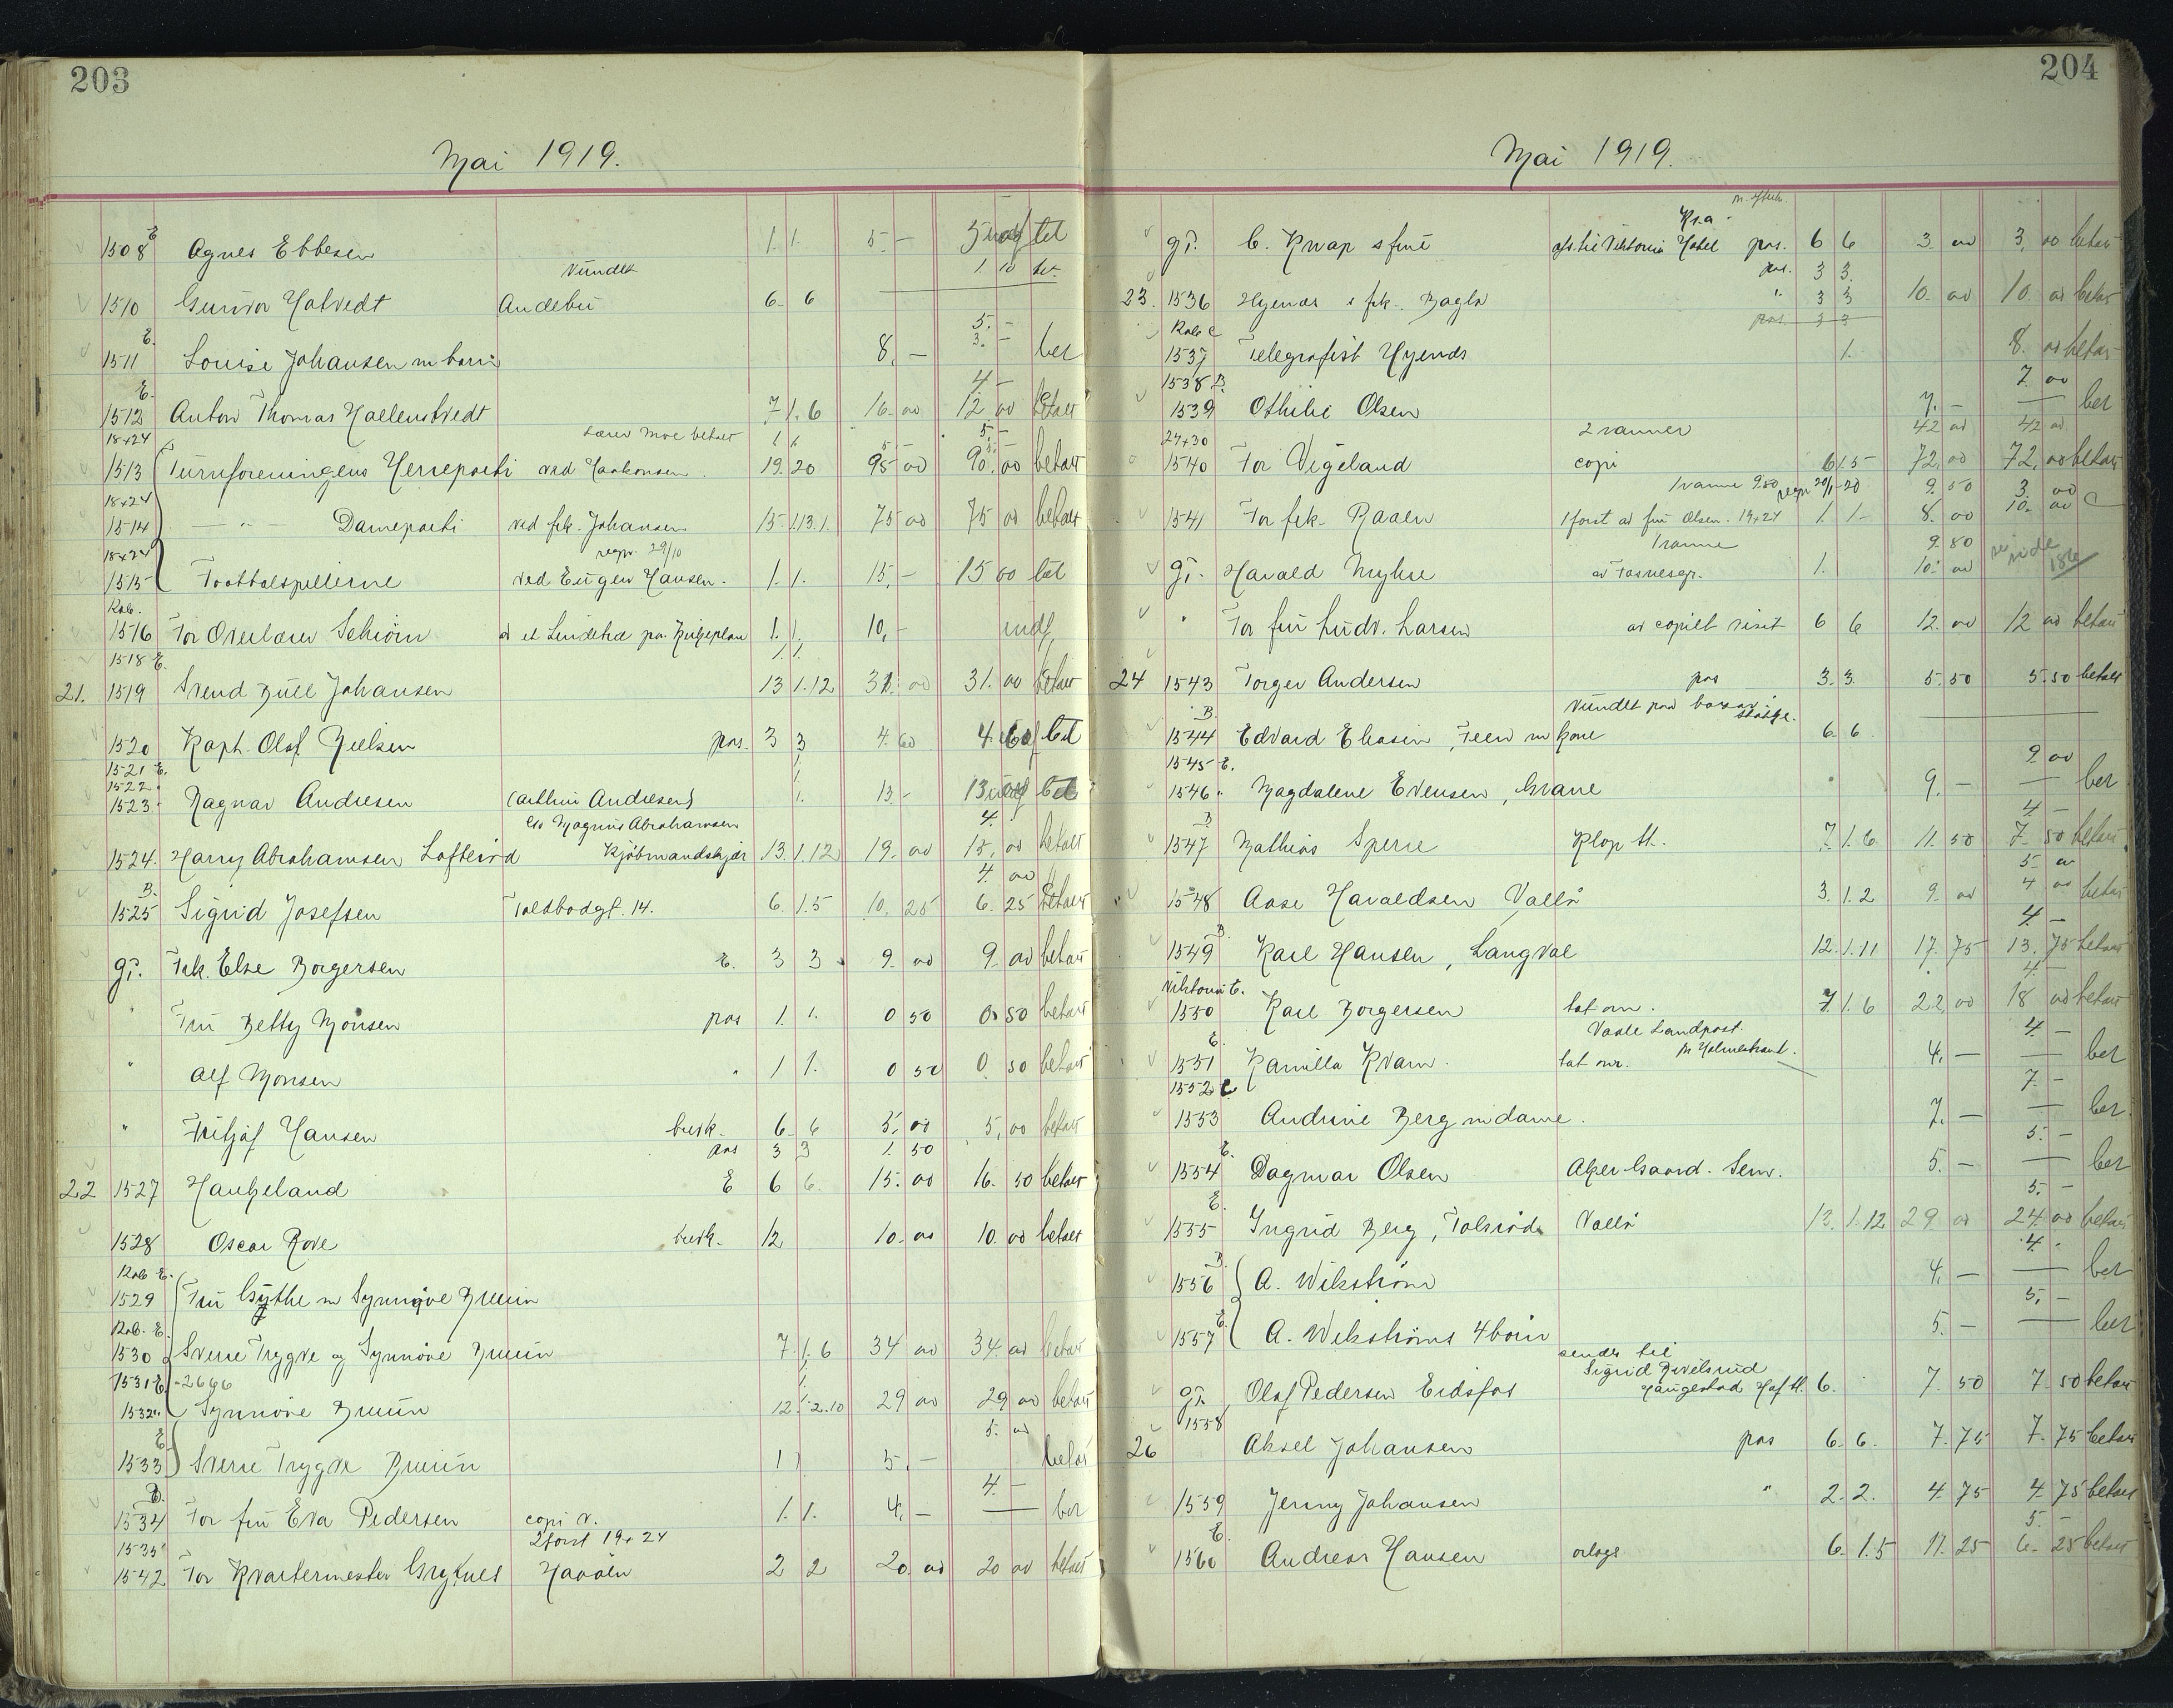 203
Mai 1919.
1508 E Agnes Ebbesen 1. 1. 5. - 5 indf bet
Vundet 1. 10 bet.
1510 Gunvor Hotvedt Andebu 6. 6
5. -
1511 E. Louise Johansen m barn 8. - 3. - ber
4 -
1512 E. Anton Thomas Hallenstvedt 7 1. 6 16. 00 12 00 betalt
18x24 Lærer Moe betalt 1 1. 5 - 5. -
1513 Turnforeningens Herreparti ved Haakonsen. 19. 20 95 00 90. 00 betalt
18x24
1514 — " — Dameparti ved frk. Johansen 15 1.13.1. 75 00 75 00 betalt
18x24 repr. 29/10
1515 Footbalspillerne ved Eugen Hansen. 1. 1. 15. - 15 00 bet
Kab.
1516 For Overlærer Schiörn 1. 1. 10. - indf.
1518 E. 1. 1.
21. 1519 Svend Bull Johansen 13 1.12 31. 00 31. 00 betalt
1520 Kapt. Olaf Nielsen pas. 3 3 4. 60 4. 60 bet
1521 E.
1522 "
1523 " Ragnar Andresen (Arthur Andresen) 1. 13 - 13 indf bet
c/o Magnus Abrahamsen 4.
1524. Harry Abrahamsen Lofteröd Kjöbmandskjær 13. 1.12 19. 00 15. 00 betalt
4. 00
1525 B. Sigrid Josefsen Toldbodgt. 14. 6. 1.5 10. 25 6. 25 betalt
gr. Frk. Else Borgersen E. 3 3 9. 00 9. 00 betalt
" Fru Betty Monsen pas 1. 1. 0 50 0. 50 betalt
" Alf Monsen " 1 1. 0 50 0. 50 betalt
" Fritjof Hansen brevk. 6. 6 5. 00 5. 00 betalt
pas 3 3 1. 50
22 1527 Haukeland E 6 6. 15. 00 16. 50 betalt
1528 Oscar Rove brevk. 12 10. 00 10. 00 betalt
Kab E.
1529 Fru Gythe m Synnöve Bruun
Kab. E.
1530 Sverre Trygve og Synnöve Bruun 7. 1. 6 34 00 34. 00 betalt
1531 E. - 2666
1532 " Synnöve Bruun 12. 1.2.10 29 00 29 00 betalt
5. 00
1533 E Sverre Trygve Bruun 1 1 5. - betalt
4. -
1534 B. For fru Eva Pedersen copi v. 1. 1. 4. - — ber
1535 2 forst 19x24
1542 For Kvartermester Grytnes Havöen 2 2 20. 00 20 00 betalt
204
Mai 1919.
Kr.a.
gr. C. Knap s frue Viktoria Hotel pas. 6 6 3. 00 3. 00 betalt
pas. 3 3.
23. 1536 Hyenæs s frk. Bagla " 3 3 10. 00 10. 00 betalt
Kab E pas. 3 3
1537 Telegrafist Hyenæs 1. 8. 00 betalt
1538 B. 7. 00
1539 Othilie Olsen 7. - — ber
24x30 2 rammer 42 00 42 00
1540 For Vigeland copi 6 1.5 72. 00 72. 00 betalt
1 ramme 9.50 repr 20/1-20 9. 50 3. 00
1541 For frk. Raaen 1 forst av fru Olsen. 19x24 1. 1 - 8. 00 10. 00
1 ramme 9 80
gr. Harald Myhre 1. 10. 00 se side 186
" For fru Ludv. Larsen av copiert visit 6 6 12. 00 12 00 betalt
24 1543 Torger Andersen pas 3. 3. 5. 50 5. 50 betalt
Vundet paa basar
1544 B. Edvard Eliasen, Teien m kone 6. 6
1545 E. 9 00
1546 " Magdalene Evensen, Grane 9. - — ber
4. -
1547 B Mathias Sperre Klop st. 7. 1. 6. 11. 50 7. 50 betalt
5. 00
1548 Aase Haraldsen Vallö 3. 1. 2 9. 00 4. 00 betalt
4. -
1549 B. Karl Hansen, Langval 12. 1.11 17. 75 13. 75 betalt
Viktoria E. 4. -
1550 Karl Borgersen tat om. 7. 1. 6 22. 00 18 00 betalt
Vaale Landpost. 4. -
1551 E. Kamilla Kvam. tat om. pr Holmestrand. 4. - — ber
1552 E 7. -
1553 Andrine Berg m dame. 7. - — ber.
5. -
1554 E. Dagmar Olsen Aker Gaard. Sem. 5. - — ber
5. -
1555 E. Ingrid Berg, Tolsröd Vallö 13. 1.12 29 00 24. 00 betalt
4. -
1556 B. A. Wikström 4. - — ber
5. -
1557 E. A. Wikströms 4 barn 5. - — ber
sendes til
Sigrid Revelsrud
gr. Olaf Pedersen Eidsfos Haugestad Hof st. 6. 7. 50 7. 50 betalt
1558
26 Aksel Johansen pas 6. 6. 7. 75 7. 75 betalt
1559 Jenny Johansen " 2. 2. 4. 75 4. 75 betalt
5. -
1560 E. Andreas Hansen orlogs 6. 1.5 11. 25 6. 25 betalt